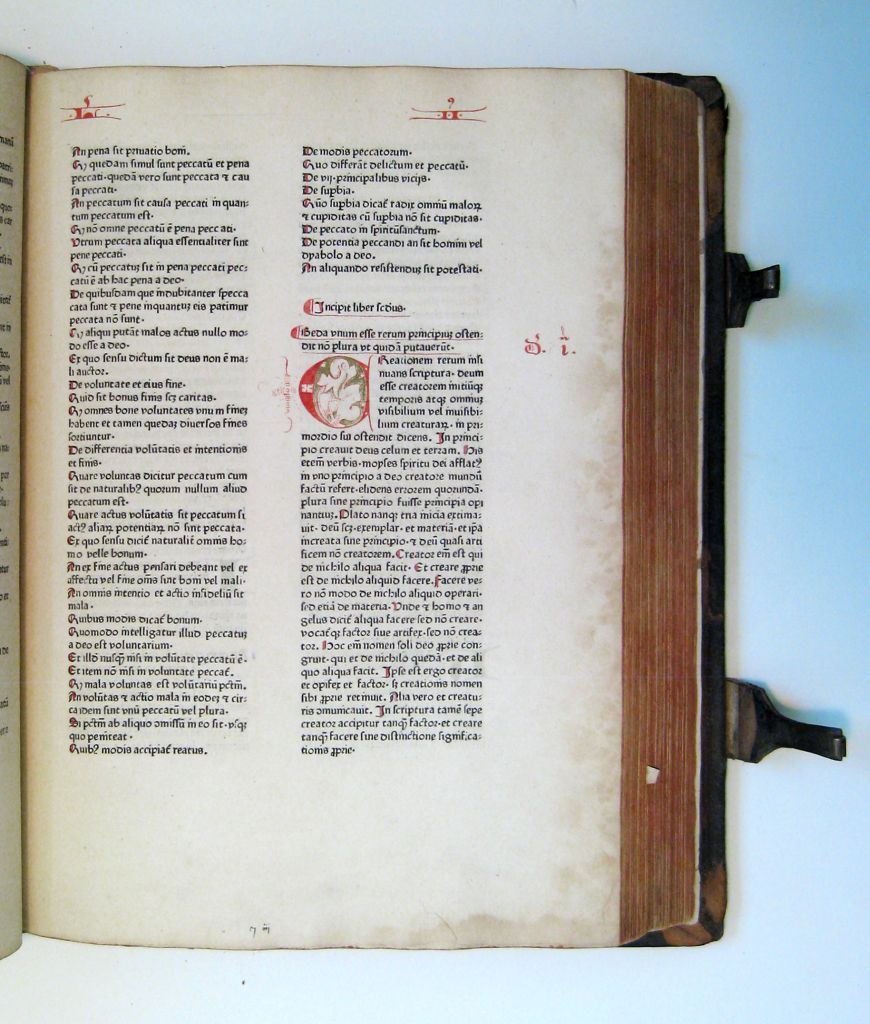 An pena sit priuatio boni.
Qͥ quedam simul sunt peccatū et pena
peccati· quedā vero sunt peccata ⁊ cau
sa peccati·
An peccatum sit causa peccati inquan-
tum peccatum est·
Qͥ nō omne peccatū ē pena peccati·
Vtrum peccata aliqua essentialiter sint
pene peccati·
Qͥ cū peccatuꝫ sit in pena peccati pec-
catū ē ab hac pena a deo·
De quibusdam que indubitanter špecca
cata sunt ⁊ pene inquantuꝫ eis patimur
peccata nō sunt·
Qͥ aliqui putāt malos actus nullo mo-
do esse a deo·
Ex quo sensu dictum sit deus non ē ma-
li auctor·
De voluntate et eius fine·
Quid sit bonus finis scꝫ caritas·
Qͥ omnes bone voluntates vnum finēꝫ
habent et tamen quedaꝫ diuersos fines
sortiuntur·
De differentia volūtatis et intentionis
et finis·
Quare voluntas dicitur peccatum cum
sit de naturalibꝰ quorum nullum aliud
peccatum est·
Quare actus volūtatis sit peccatum si
actꝰ aliaꝝ potentiaꝝ nō sint peccata·
Ex quo sensu dicit̄ naturalit̄ omnis ho-
mo velle bonum·
An ex fine actus pensari debeant vel ex
affectu vel fine om̄s sint boni vel mali·
An omnis intentio et actio infideliū sit
mala·
Quibus modis dicat̄ bonum·
Quomodo intelligatur illud peccatuꝫ
a deo est voluntarium·
Et illd nusqͣ nisi in volūtate peccatū ē·
Et item nō nisi in voluntate peccat̄·
Qͥ mala voluntas est volūtariū pctm̄·
An volūtas ⁊ actio mala in eodeꝫ ⁊ cir-
ca idem sunt vnū peccatū vel plura·
Si pctm̄ ab aliquo omissū in eo sit· vsqꝫ
quo peniteat·
Quibꝰ modis accipiat̄ reatus.
·II·
De modis peccatorum·
Quo differāt delictum et peccatū·
De vij· principalibus vicijs·
De suꝑbia·
Quō suꝑbia dicat̄ radix omniū maloꝝ
⁊ cupiditas cū suꝑbia nō sit cupiditas·
De peccato in spiritūsanctum·
De potentia peccandi an sit homini vel
dyabolo a deo·
An aliquando resistenduꝫ sit potestati·
Incipit liber scd̄us·
Beda vnum esse rerum principiuꝫ osten-
dit nō plura vt quidā putauerūt·
CReationem rerum insi
nuans scriptura· deum
esse creatorem initiūqꝫ
temporis atqꝫ omniuꝫ
visibilium vel inuisibi-
lium creaturaꝝ· in pri
mordio sui ostendit dicens. In princi-
pio creauit deus celum et terram. His
etenī verbis· moyses spiritu dei afflatꝰ
in vno principio a deo creatore mundū
factū refert· elidens errorem quorundā·
plura sine principio fuisse principia opi
nantiuꝫ. Plato nanqꝫ tria inicia extima-
uit· deū scꝫ· exemplar· et materiā· et ip̄a
increata sine principio· ⁊ deū quasi arti
ficem nō creatorem. Creator em̄ est qui
de nichilo aliqua facit· Et creare ꝓprie
est de nichilo aliquid facere. Facere ve-
ro nō modo de nichilo aliquid operari·
sed etiā de materia. Vnde ⁊ homo ⁊ an
gelus dicit̄ aliqua facere sed nō creare·
vocat̄qꝫ factor siue artifex· sed nō crea-
tor. Hoc em̄ nomen soli deo ꝓprie con-
gruit· qui et de nichilo quedā· et de ali
quo aliqua facit. Ipse est ergo creator
et opifex et factor· sꝫ creationis nomen
sibi ꝓprie retinuit. Alia vero et creatu-
ris cōmunicauit. In scriptura tamē sepe
creator accipitur tanqͣ factor· et creare
tanqͣ facere sine distinctione significa-
tionis ꝓprie·
d. i.